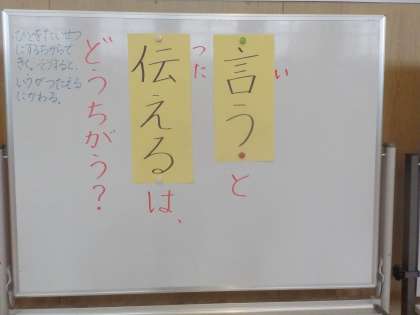 言うと
い
伝えるは、
つた
どうちがう？
ひとをたいせつ
にするちからで
きく。そうすると、
いうがつたえる
にかわる。